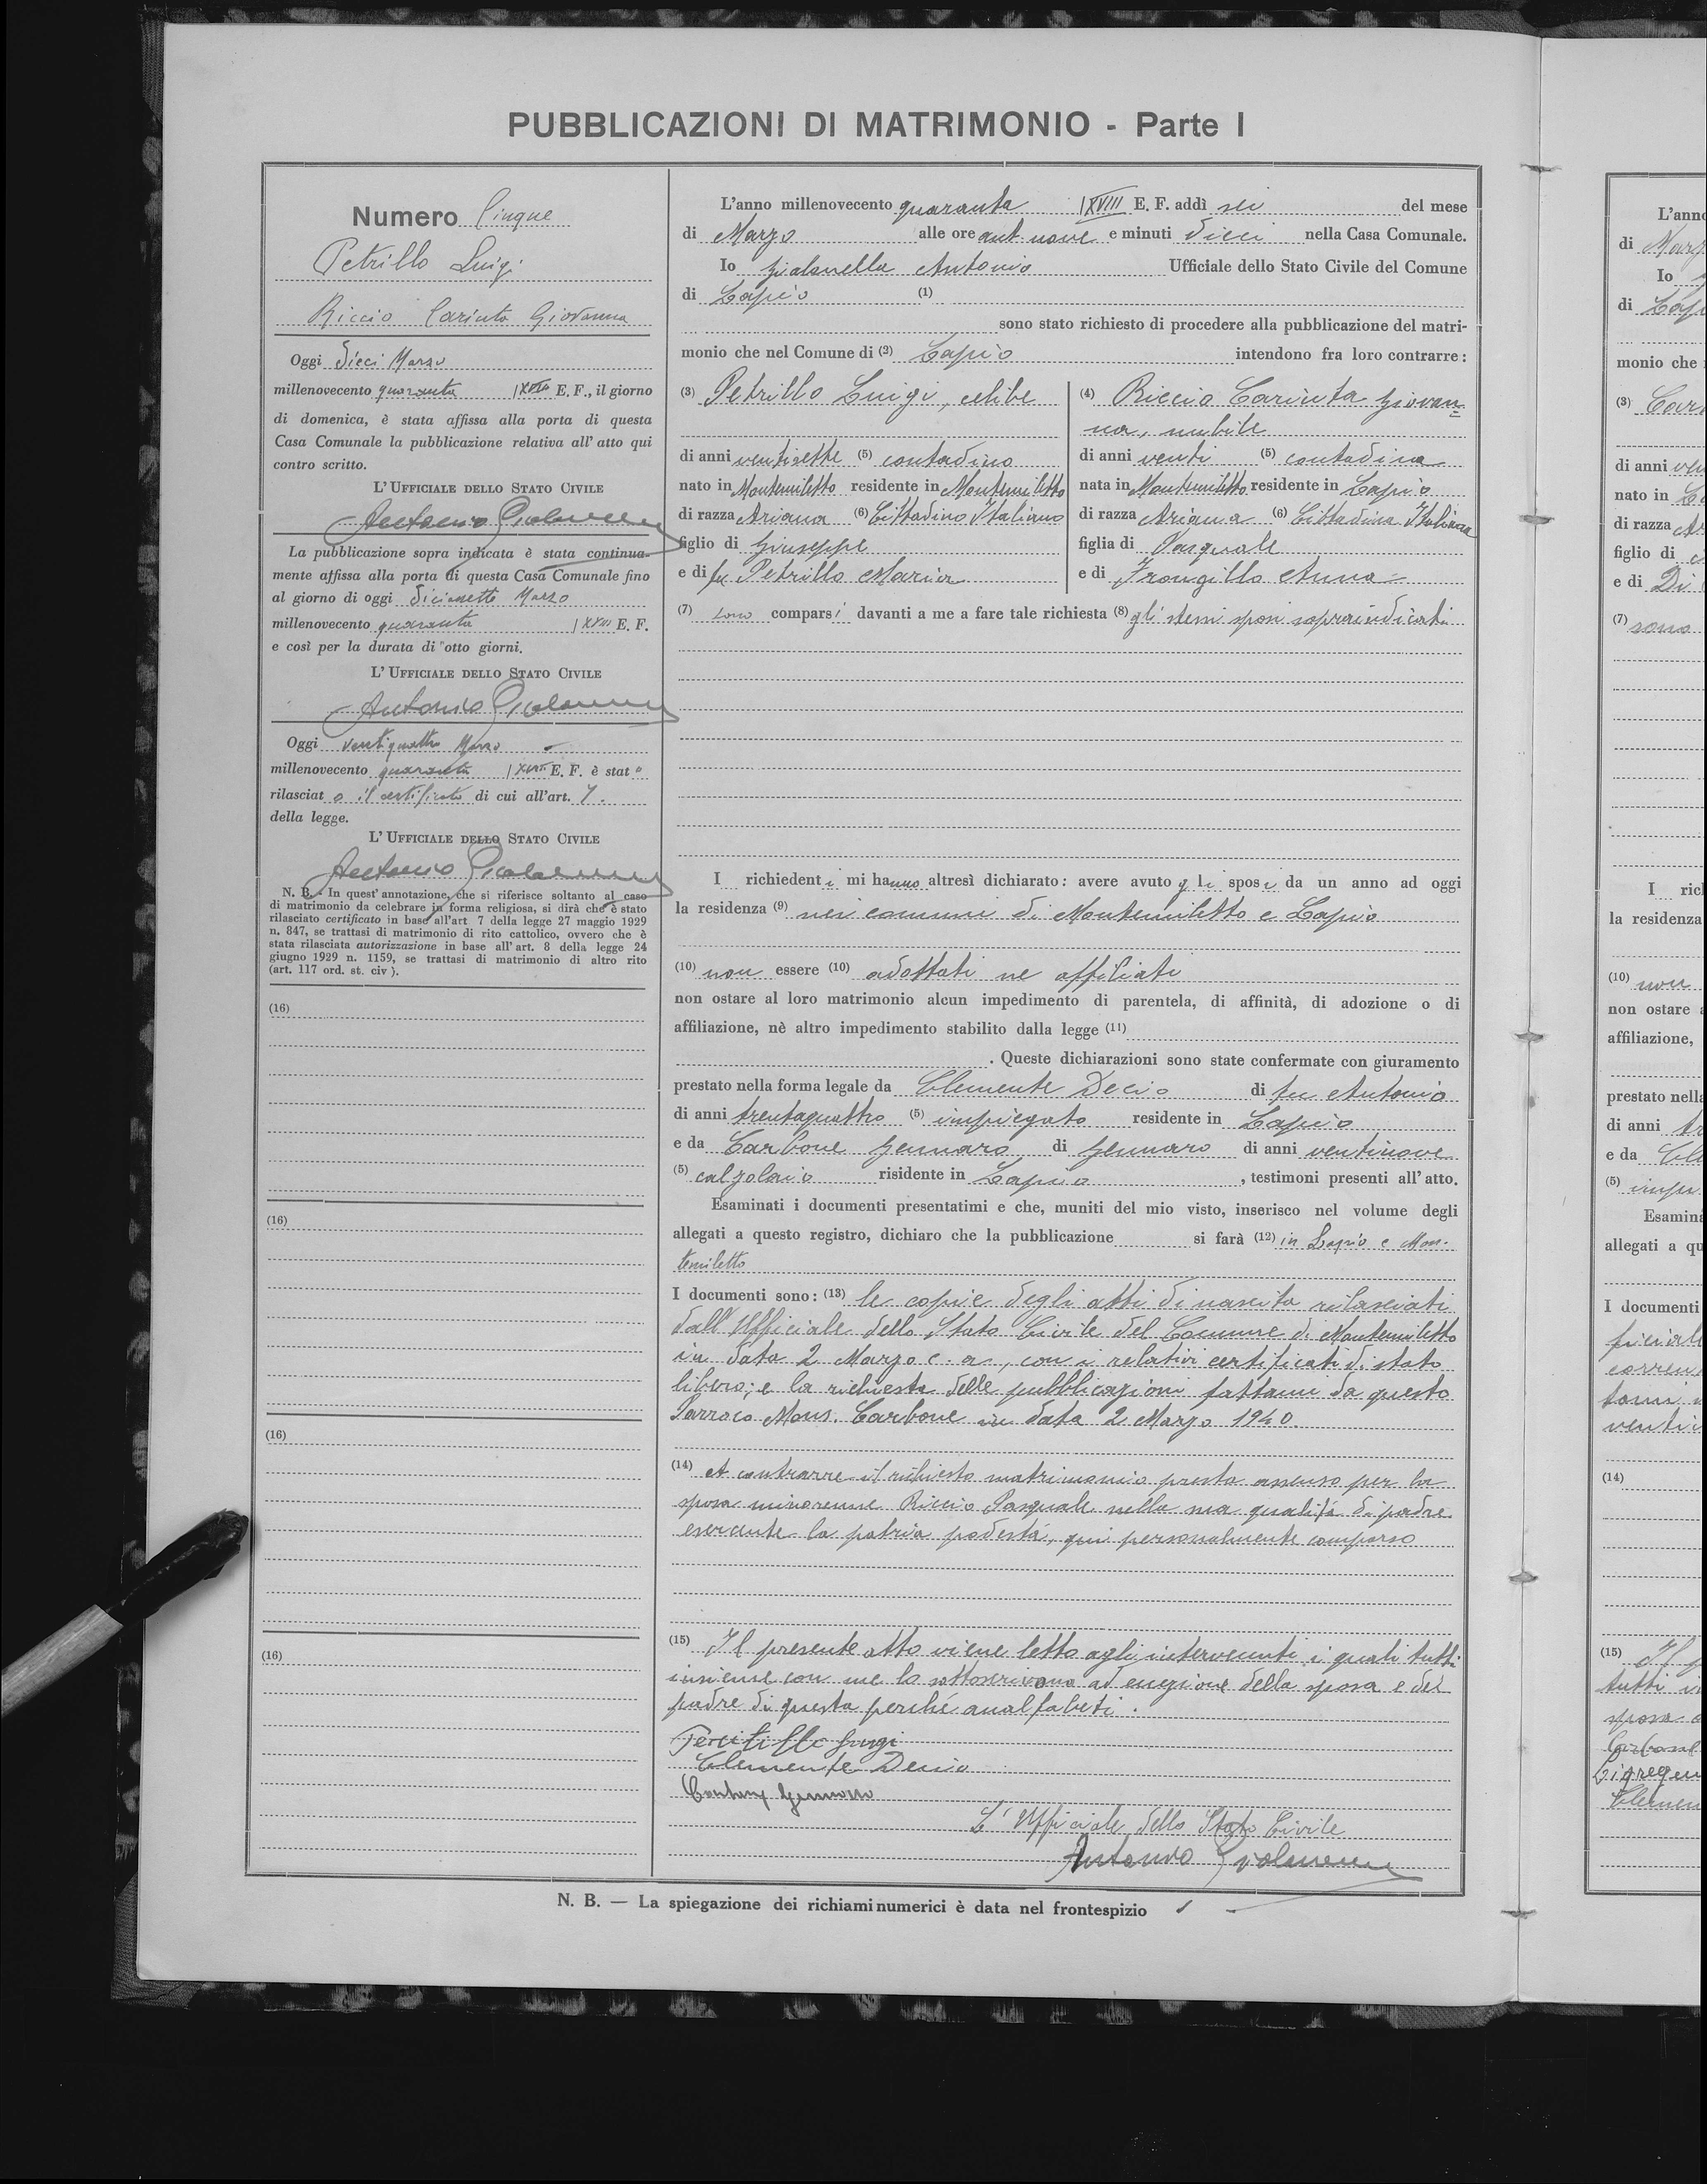 PUBBLICAZIONI DI MATRIMONIO - Parte I
Numero Cinque
Petrillo Luigi
Riccio Carinta Giovanna
Oggi dieci Marzo
millenovecento quaranta / XVIII E. F., il giorno
di domenica, è stata affissa alla porta di questa
Casa Comunale la pubblicazione relativa all' atto qui
contro scritto.
L' UFFICIALE DELLO STATO CIVILE
Antonio
La pubblicazione sopra indicata è stata continua-
mente affissa alla porta di questa Casa Comunale fino
al giorno di oggi diciassette Marzo
millenovecento quaranta / XVIII E. F.
e così per la durata di otto giorni.
L' UFFICIALE DELLO STATO CIVILE
Antonio
Oggi ventiquattro Marzo
millenovecento quaranta / XVIII E. F. è stat o
rilasciat o il certificato di cui all'art. 7.
della legge.
L' UFFICIALE DELLO STATO CIVILE
Antonio
N. B. - In quest' annotazione, che si riferisce soltanto al caso
di matrimonio da celebrare in forma religiosa, si dirà che è stato
rilasciato certificato in base all'art 7 della legge 27 maggio 1929
n. 847, se trattasi di matrimonio di rito cattolico, ovvero che è
stata rilasciata autorizzazione in base all' art. 8 della legge 24
giugno 1929 n. 1159, se trattasi di matrimonio di altro rito
(art. 117 ord. st. civ ).
(16)
(16)
(16)
(16)
L'anno millenovecento quaranta / XVIII E. F. addì sei del mese
di Marzo alle ore ant. nove e minuti dieci nella Casa Comunale.
Io Antonio Ufficiale dello Stato Civile del Comune
di Lapio (1)
sono stato richiesto di procedere alla pubblicazione del matri-
monio che nel Comune di (2) Lapio intendono fra loro contrarre :
(3) Petrillo Luigi, celibe
di anni ventisette (5) contadino
nato in Montemiletto residente in Montemiletto
di razza Ariana (6) Cittadino Italiano
figlio di Giuseppe
e di fu Petrillo Maria
(4) Riccio Carinta Giovan=
na, nubile
di anni venti (5) contadina
nata in Montemiletto residente in Lapio
di razza Ariana (6) Cittadina Italiana
figlia di Pasquale
e di Frongillo Anna
(7) sono compars i davanti a me a fare tale richiesta (8) gli stessi sposi sopraindicati
I richiedent i mi hanno altresì dichiarato : avere avuto g li spos i da un anno ad oggi
la residenza (9) nei comuni di Montemiletto e Lapio
(10) non essere (10) adottati ne affiliati
non ostare al loro matrimonio alcun impedimento di parentela, di affinità, di adozione o di
affiliazione, nè altro impedimento stabilito dalla legge (11)
. Queste dichiarazioni sono state confermate con giuramento
prestato nella forma legale da Clemente Decio di fu Antonio
di anni trentaquattro (5) impiegato residente in Lapio
e da Carbone Gennaro di Gennaro di anni ventinove
(5) calzolaio risidente in Lapio , testimoni presenti all' atto.
Esaminati i documenti presentatimi e che, muniti del mio visto, inserisco nel volume degli
allegati a questo registro, dichiaro che la pubblicazione si farà (12) in Lapio e Mon-
temiletto
I documenti sono : (13) le copie degli atti di nascita rilasciati
dall'Ufficiale dello Stato Civile del Comune di Montemiletto
in data 2 Marzo c. a., con i relativi certificati di stato
libero; e la richiesta delle pubblicazioni fattami da questo
Parroco Mons. Carbone in data 2 Marzo 1940.
(14) A contrarre il richiesto matrimonio presta assenso per la
sposa minorenne Riccio Pasquale nella sua qualità di padre
esercente la patria podestà, qui personalmente comparso
(15) Il presente atto viene letto agli intervenuti i quali tutti
insieme con me lo sottoscrivono ad eccezione della sposa e del
padre di questa perché analfabeti.
Petrillo Luigi
Clemente Decio
Carbone Gennaro
L'Ufficiale dello Stato Civile
Antonio
N. B. — La spiegazione dei richiami numerici è data nel frontespizio
L'anno
di Marz
Io
di Lap
monio che
(3) Car
di anni ven
nato in L
di razza A
figlio di
e di Di
(7) sono
I ric
la residenza
(10) non
non ostare
affiliazione,
prestato nella
di anni tr
e da Cle
(5) impi
Esamin
allegati a qu
I documenti
ficiale
corren
venti
(14)
(15) Il p
tutti
sposa
Clemen